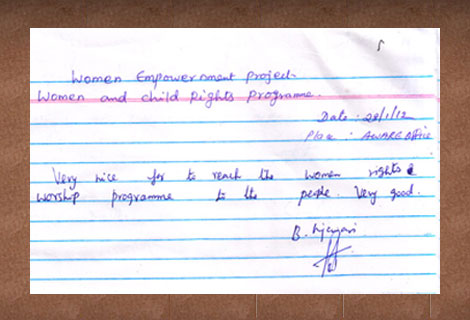 Women Empowerment Project
Women and Child Rights Programme.
Date : 28/1/12
Place : AWARE office
Very nice for to reach the women rights
worship programme to the people. Very good.
B.